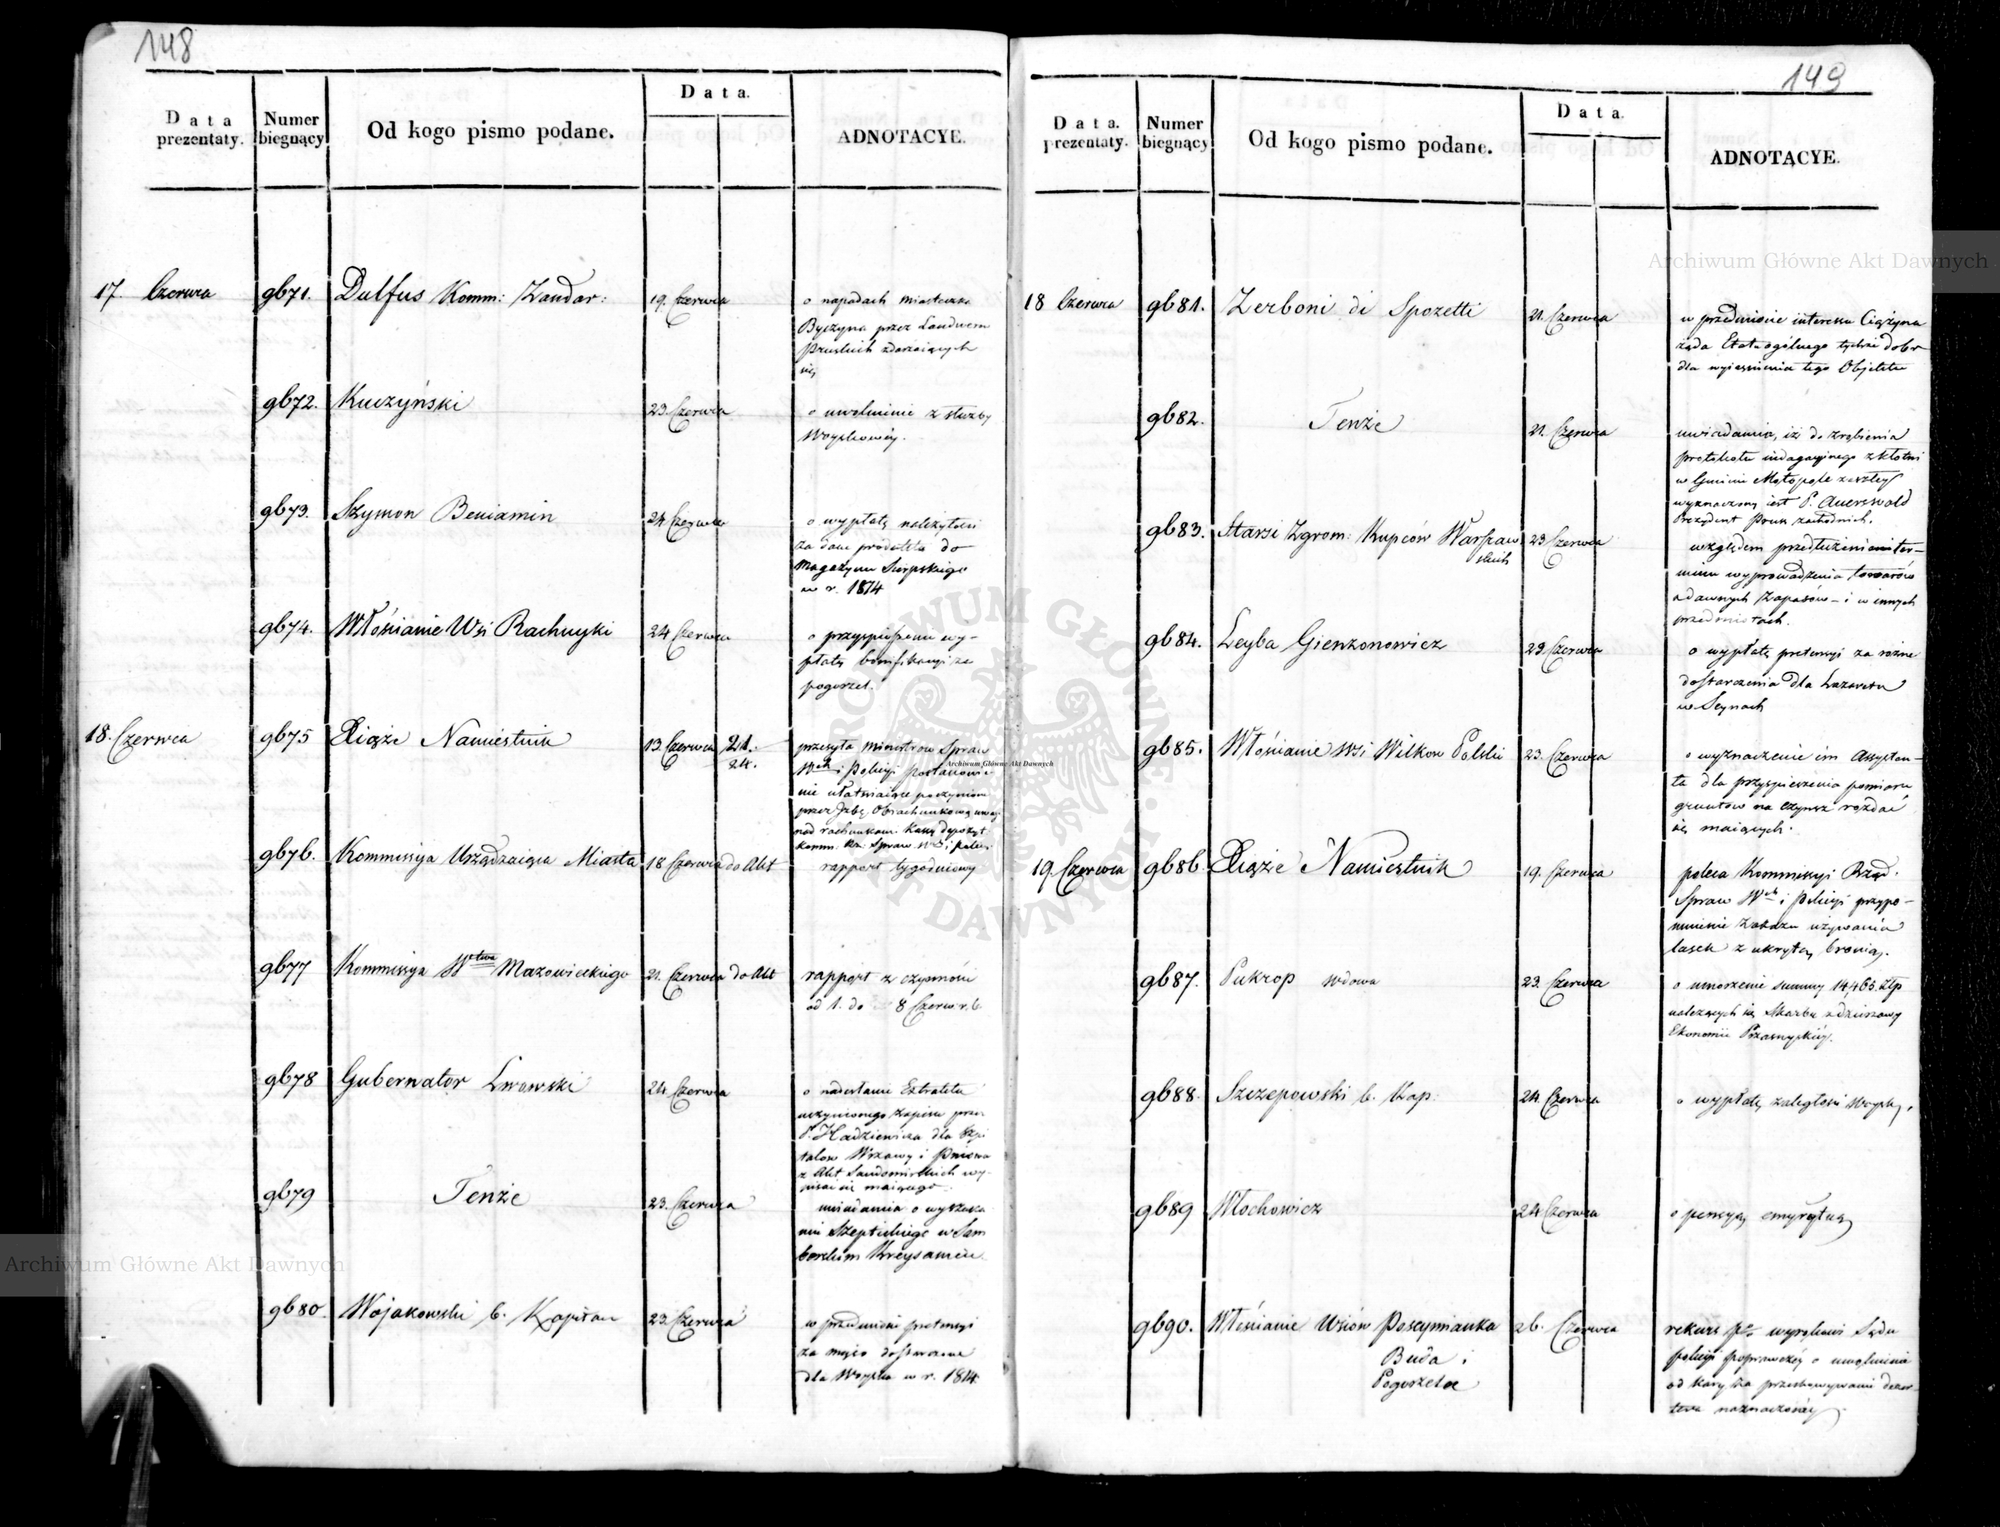 148
Data prezentaty.
Numer biegnący
Od kogo pismo podane.
Data.
ADNOTACYE.
17. Czerwca
9671.
Dulfus Komm: Żandar:
19. Czerwca
o napadach miasteczka
Byczyna przez Landwem
Pruskich zdarzaiących
się
9672.
Kuczyński
23. Czerwca
o uwolnienie z służby
Woyskowéy.
9673.
Szymon Beniamin
24 Czerwca
o wypłatę należytości
za dane produkta do
Magazynu Sierpskiego
w r. 1814
9674.
Włościanie Wsi Rachuyki
24 Czerwca
o przyspieszenie wy-
płaty bonifikacyi za
pogorzel.
18. Czerwca
9675
Xiąże Namiestnik
13. Czerwca
21.
24.
przesyła Ministrow Spraw
Wch i Policyi postanowie
nie ułatwiaiące poczynione
przez Jzbę Obrachunkową uwagi
nad rachunkam. Kassy depozyt
Komm. Rz. Spraw. Wch i Policyi
9676.
Kommissya Urządzaiąca Miasta
18 Czerwca
do Akt
rapport tygodniowy
9677
Kommissya Wctwa Mazowieckiego
21. Czerwca
do Akt
rapport z czynności
od 1. do 8 Czerw. r. b.
9678
Gubernator Lwowski
24. Czerwca
o nadesłanie Extraktu
uczynionego zapisu przez
P. Hadziewicza dla Szpi
talow Wrzawy i Pniowa
z Akt Sandomirskich wy-
pisać się maiącego.
9679
Tenże
23. Czerwca
uwiadamia o wyszuka
niu Szeptickiego w Sam
borskim Kreysamcie.
9680.
Wojakowski b. Kapitan
23. Czerwca
w przedmiocie pretensyi
za mięso dostarczone
dla Woyska w r. 1814
149
Data. prezentaty.
Numer biegnący
Od kogo pismo podane.
Data.
ADNOTACYE.
18 Czerwca
9681.
Zerboni di Spozetti
21. Czerwca
w przedmiocie interesu Ciążyna
żąda Etatu ogólnego tychże dobr
dla wyiaśnienia tego Objektu
9682.
Tenże
21. Czerwca
uwiadamia, iż do zrobienia
protokołu indagacyinego z kłotni
w Gminie Małopole zaszłey
wyznaczony iest P. Auerswald
Prezydent Pruss zachodnich.
9683.
Starsi Zgrom: Kupców Warszaw
skich
23 Czerwca
względem przedłużenia ter-
minu wyprowadzenia towarów
z dawnych Zapasów - i w innych
przedmiotach.
9684.
Leyba Gienzonowicz
23. Czerwca
o wypłatę pretensyi za różne
dostarczenia dla Lazaretu
w Seynach
9685.
Włościanie Wsi Wilkow Polski
23. Czerwca
o wyznaczenie im Assysten-
ta dla przyspieszenia pomiaru
gruntów na czynsz rozdać
się maiących.
19. Czerwca
9686
Xiąże Namiestnik
19. Czerwca
poleca Kommissyi Rząd.
Spraw Wch i Policyi przypo-
mnienie zakazu używania
lasek z ukrytą bronią.
9687.
Pukrop wdowa
23. Czerwca
o umorzenie summy 14,465. złp
należących się Skarbu z dzierżawy
Ekonomii Przasnyskiéy.
9688.
Szczepowski b. Kap:
24. Czerwca
o wypłatę zaległości Woysk,
9689
Włochowicz
24 Czerwca
o pensyą emerytną
9690.
Włościanie Wsiów Poscynianka
Buda i
Pogorzelce
26. Czerwca
rekurs pko wyrokowi Sądu
Policyi poprawczéy o uwolnienie
od kary, za przechowywanie dezer-
tera naznaczonéy.
Archiwum Główne Akt Dawnych
Archiwum Główne Akt Dawnych
Archiwum Główne Akt Dawnych
ARCHIWUM GŁÓWNE AKT DAWNYCH